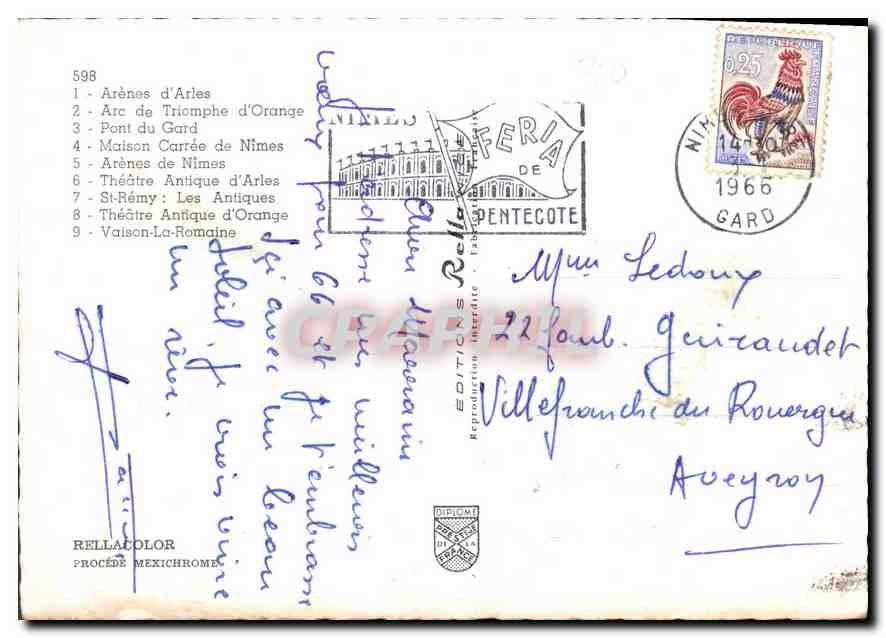 598
1 - Arènes d'Arles
2 - Arc de Triomphe d'Orange
3 - Pont du Gard
4 - Maison Carrée de Nîmes
5 - Arènes de Nîmes
6 - Théâtre Antique d'Arles
7 - St-Rémy : Les Antiques
8 - Théâtre Antique d'Orange
9 - Vaison-La-Romaine
RELLACOLOR
PROCÉDÉ MEXICHROME
Chère
J'adresse mes meilleurs
vœux pour 66 et je t'embrasse
J'ai avec un beau
soleil. Je vais vivre
un rêve.
EDITIONS Rella
Reproduction interdite - Fabrication
NIMES
FERIA
DE
PENTECOTE
REPUBLIQUE FRANÇAISE
0,25
NIM
14 30
1966
GARD
Mme Ledoux
22 faub. Guiraudet
Villefranche du Rouergue
Aveyron
DIPLOME
PRESTIGE
DE LA
FRANCE
CPAPHIL